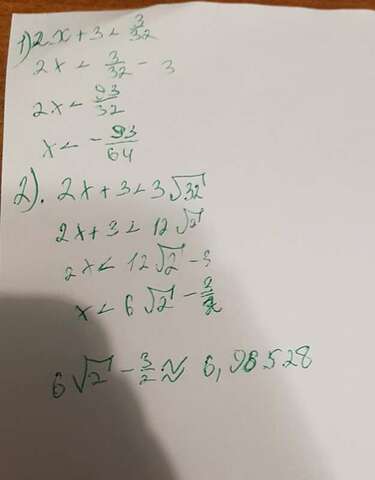 1) 2x + 3 < 3/32
2x < 3/32 - 3
2x < 93/32
x < - 93/64
2). 2x + 3 < 3√32
2x + 3 < 12√2
2x < 12√2 - 3
x < 6√2 - 3/2
6√2 - 3/2 ≈ 6,98528